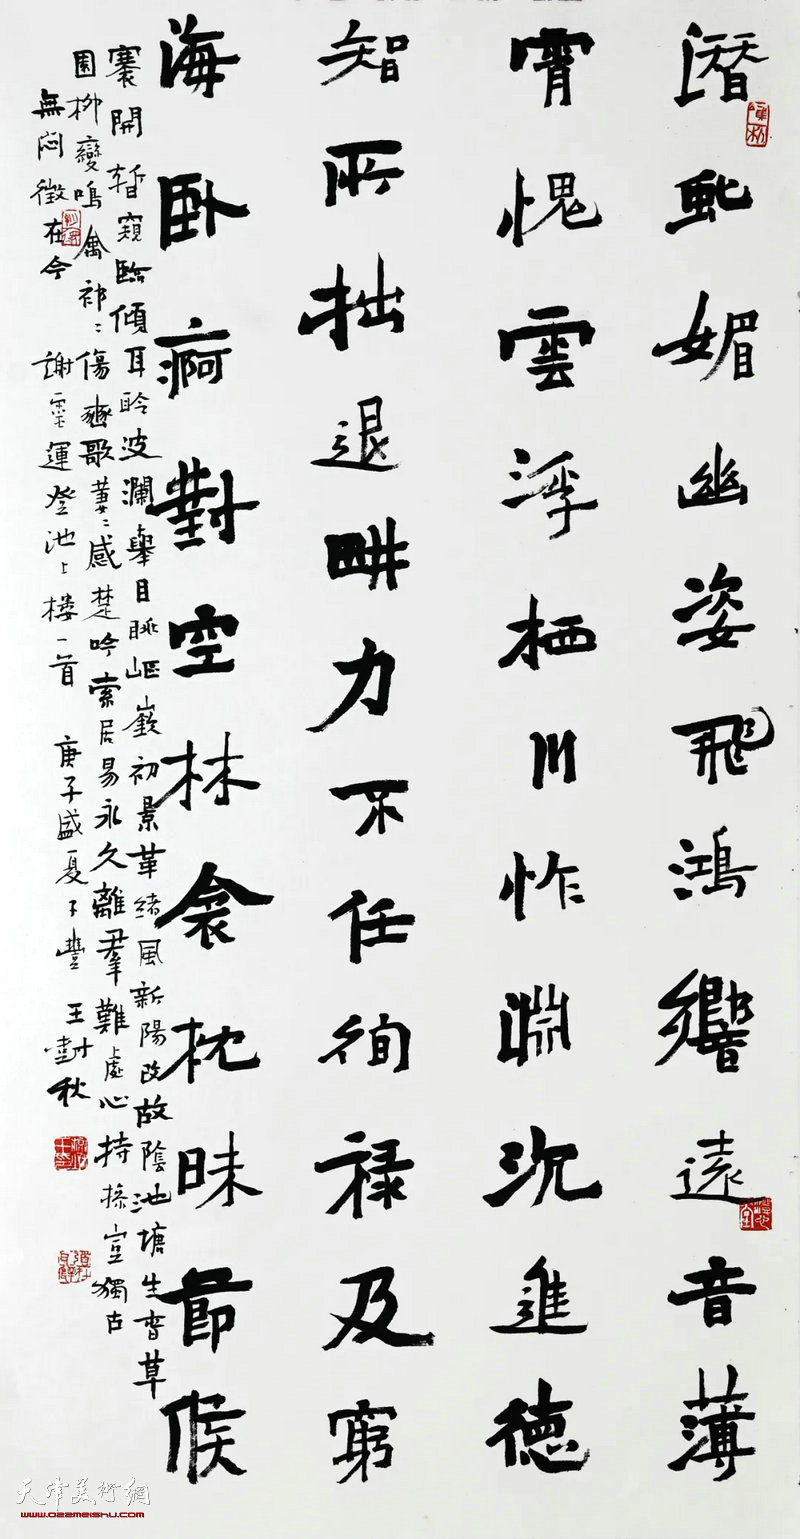 潛虬媚幽姿飛鴻響遠音薄
霄愧雲浮栖川怍淵沉進德
智所拙退畊力不任徇祿及窮
海卧痾對空林衾枕昧節候
褰開暫窺臨傾耳聆波瀾舉目眺嶇嶔初景革緒風新陽改故陰池塘生春草
園柳變鳴禽祁〻傷豳歌萋〻感楚吟索居易永久離羣難處心持操豈獨古
無悶徵在今 謝靈運登池上樓一首 庚子盛夏于豐 王尌秋
天津美術網
www.022meishu.com